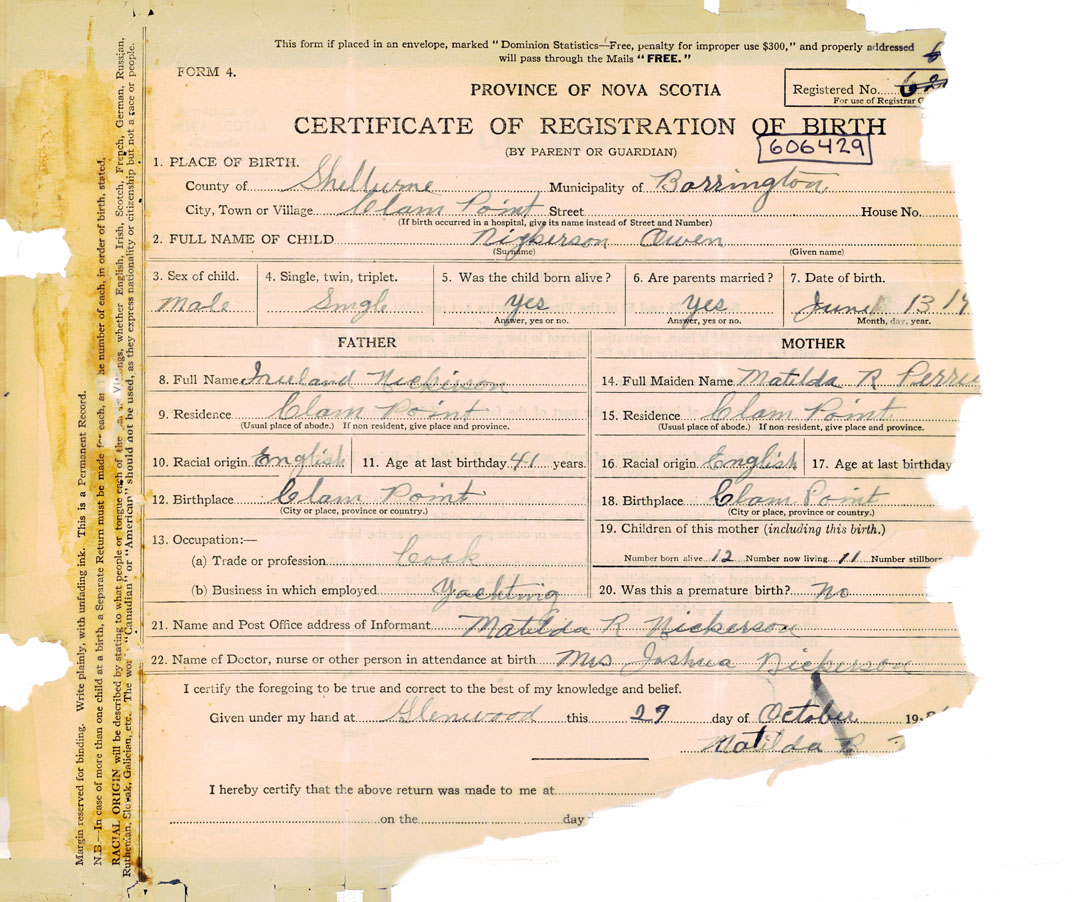 This form if placed in an envelope, marked "Dominion Statistics—Free, penalty for improper use $300," and properly addressed
will pass through the Mails "FREE."
FORM 4.
PROVINCE OF NOVA SCOTIA
Registered No.
For use of Registrar
CERTIFICATE OF REGISTRATION OF BIRTH
(BY PARENT OR GUARDIAN)
606429
1. PLACE OF BIRTH.
County of Shelburne Municipality of Barrington
City, Town or Village Clam Point Street House No.
(If birth occurred in a hospital, give its name instead of Street and Number)
2. FULL NAME OF CHILD Nickerson Owen
(Surname) (Given name)
3. Sex of child. 4. Single, twin, triplet. 5. Was the child born alive? 6. Are parents married? 7. Date of birth.
Male Single Yes Yes June 13 19
Answer, yes or no. Answer, yes or no. Month, day, year.
FATHER MOTHER
8. Full Name Nickerson 14. Full Maiden Name Matilda R
9. Residence Clam Point 15. Residence Clam Point
(Usual place of abode.) If non resident, give place and province. (Usual place of abode.) If non-resident, give place and province.
10. Racial origin English 11. Age at last birthday 41 years. 16 Racial origin English 17. Age at last birthday
12. Birthplace Clam Point 18. Birthplace Clam Point
(City or place, province or country.) (City or place, province or country.)
13. Occupation:— 19. Children of this mother (including this birth.)
(a) Trade or profession Cook Number born alive 12 Number now living 11 Number stillbor
(b) Business in which employed Yachting 20. Was this a premature birth? No
21. Name and Post Office address of Informant Matilda R Nickerson
22. Name of Doctor, nurse or other person in attendance at birth Mrs Joshua Nickerson
I certify the foregoing to be true and correct to the best of my knowledge and belief.
Given under my hand at Glenwood this 29 day of October 19
Matilda R
I hereby certify that the above return was made to me at
on the day
Margin reserved for binding. Write plainly, with unfading ink. This is a Permanent Record.
N.B—In case of more than one child at a birth, a Separate Return must be made for each, and the number of each, in order of birth, stated.
RACIAL ORIGIN will be described by stating to what people or tongue each of the whether English, Irish, Scotch, French, German, Russian,
Ruthenian, Slovak, Galician, etc. The wor "Canadian" or "American" should not be used, as they express nationality or citizenship but not a race or people.